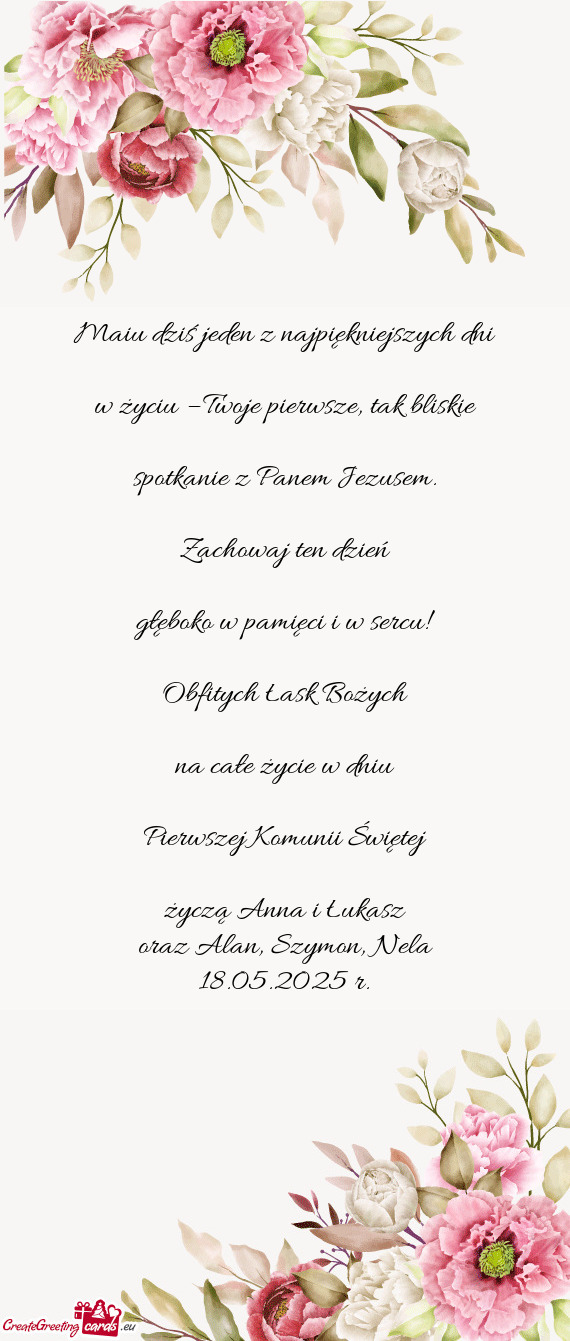 Maiu dziś jeden z najpiękniejszych dni
w życiu –Twoje pierwsze, tak bliskie
spotkanie z Panem Jezusem.
Zachowaj ten dzień
głęboko w pamięci i w sercu!
Obfitych Łask Bożych
na całe życie w dniu
Pierwszej Komunii Świętej
życzą Anna i Łukasz
oraz Alan, Szymon, Nela
18.05.2025 r.
CreateGreeting cards .eu